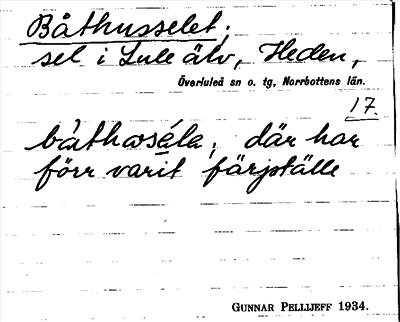 Båthusselet;
sel i Lule älv, Heden,
Överluleå sn o. tg, Norrbottens län.
17.
bǻthωséla, där har
förr varit färjställe
GUNNAR PELLIJEFF 1934.